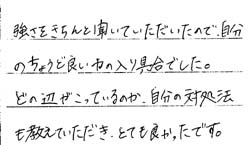 強さをきちんと聞いていただいたので、自分
のちょうど良い力の入り具合でした。
どの辺がこっているのか、自分の対処法
も教えていただき、とても良かったです。